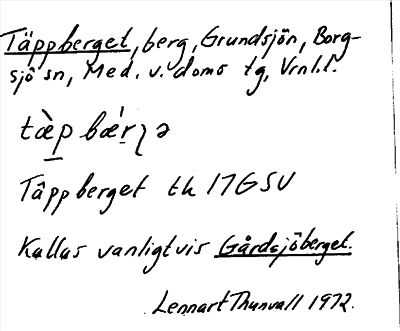 Täppberget, berg, Grundsjön, Borg-
sjö sn, Med. v. doms tg, Vrnl.l.
tæ̀p bǽrʅə
Täppberget tk 17GSV
Kallas vanligtvis Gårdsjöberget.
Lennart Thunvall 1972.